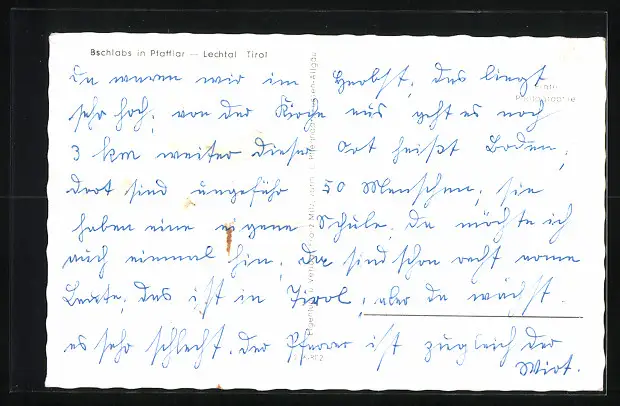 Bschlabs in Pfafflar — Lechtal Tirol
Da waren wir im Herbst, das liegt
sehr hoch, von der Kirche aus geht es noch
3 km weiter dieser Ort heißt Boden,
dort sind ungefähr 50 Menschen, sie
haben eine eigene Schule, da möchte ich
auch einmal hin, das sind schon recht arme
Leute, das ist in Tirol, aber da wächst
es sehr schlecht. der Pfarrer ist zugleich der
Wirt.